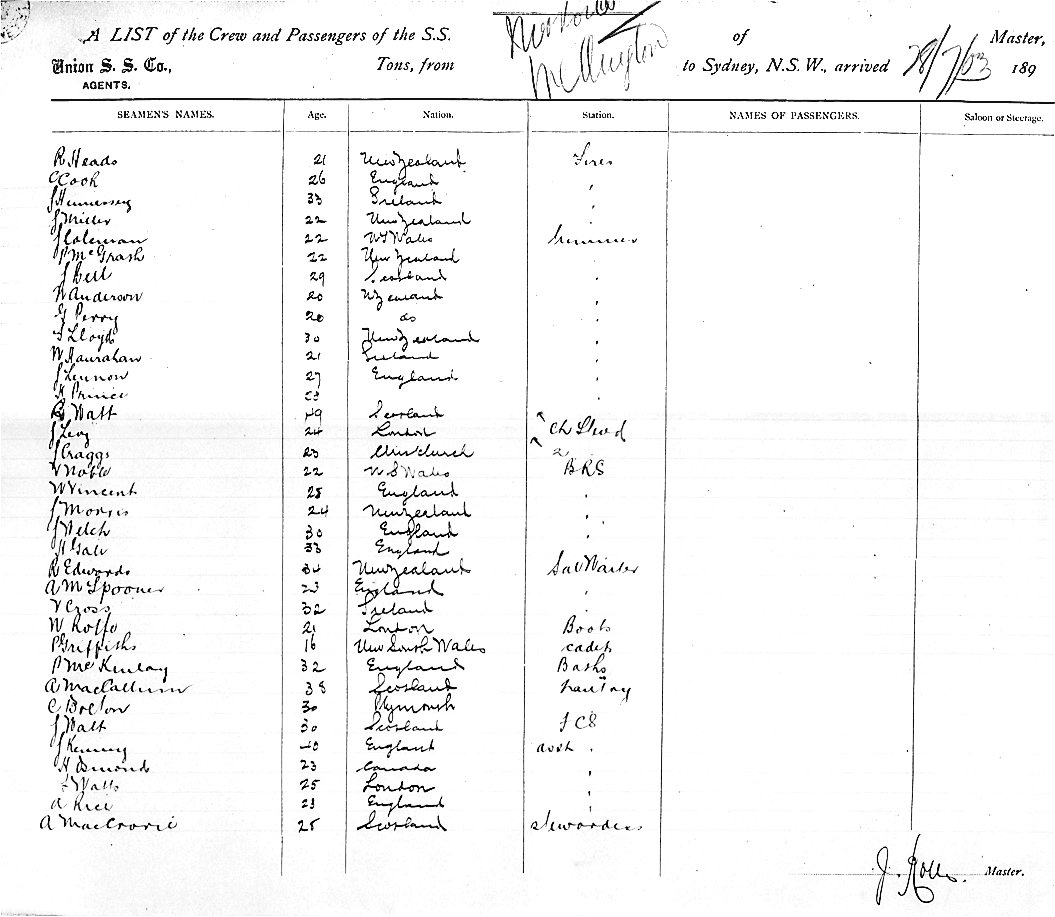 A LIST of the Crew and Passengers of the S.S. of Master,
Union S. S. Co., Tons, from Wellington to Sydney, N.S.W., arrived 28/7/03 189
AGENTS.
SEAMEN'S NAMES. Age. Nation. Station. NAMES OF PASSENGERS. Saloon or Steerage.
R Heads 21 New Zealand Fires
C Cook 26 England "
J Hennessy 33 Ireland "
J Miller 22 New Zealand "
J Coleman 22 N S Wales Trimmer
P McGrath 22 New Zealand "
J Bell 29 Scotland "
W Anderson 20 N Zealand "
G Perry 20 do "
Lloyd 30 New Zealand "
W Hanrahan 21 Ireland "
J Lennon 27 England "
H Prince "
R Watt 49 Scotland
J Levy 24 London Ch Stwd
J Craggs 23 ChrisChurch 2
V Noble 22 N S Wales BRS
W Vincent 25 England "
J Morris 24 New Zealand "
J Welch 30 England "
33 England
R Edwards 34 New Zealand Sal Waiter
A McSpooner 23 England "
V Cross 32 Ireland "
W Rolfe 21 London Boots
P Griffiths 16 New South Wales cadet
P McKinlay 32 England Baths
A MacCallum 38 Scotland Pantry
C Bolton 30 Plymouth
J Watt 30 Scotland F C S
J Kenny 40 England asst "
H Osmond 23 Canada "
Watts 25 London "
A Rice 23 England "
A MacCrorie 25 Scotland Stewardess
J. Rolls. Master.